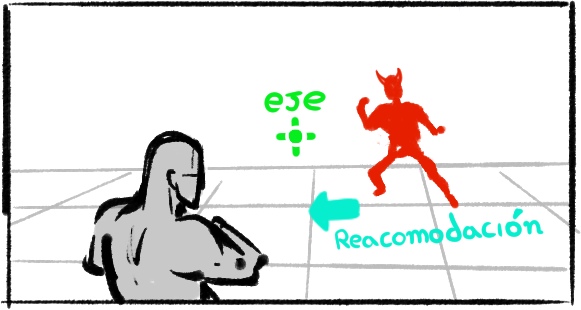 eje
Reacomodación